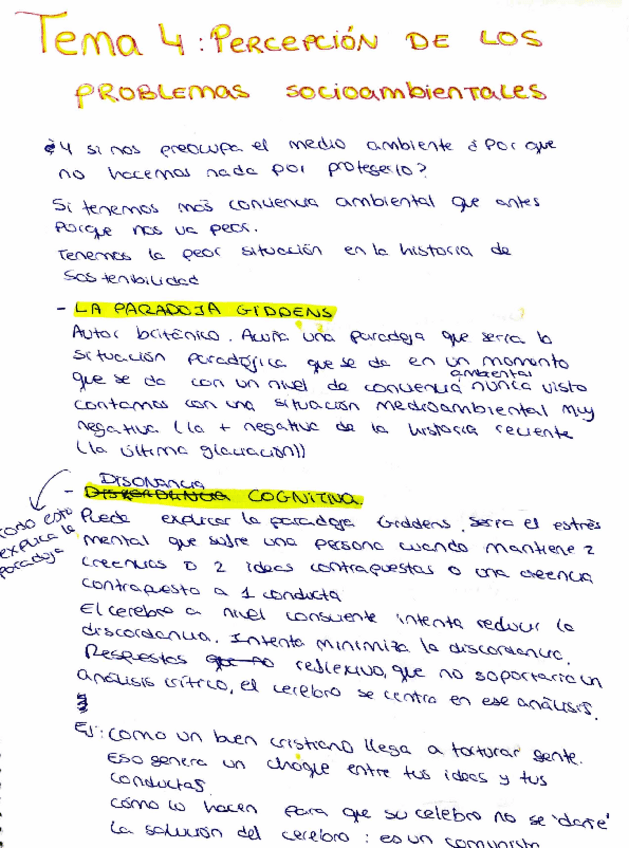 Tema 4: PERCEPCIÓN DE LOS
PROBLEMAS SOCIOAMBIENTALES
¿Y si nos preocupa el medio ambiente ¿Por que
no hacemos nada por protegerlo?
Si tenemos más conciencia ambiental que antes
Porque nos va peor.
Tenemos la peor situación en la historia de
Sostenibilidad
- LA PARADOJA GIDDENS
Autor británico. Acuña una paradoja que sería la
situación paradójica que se da en un momento
ambiental
que se da con un nivel de conciencia nunca visto
contamos con una situación medioambiental muy
negativa (la + negativa de la historia reciente
(la última glaciación))
Disonancia
- COGNITIVA
todo esto
explica la
paradoja
Puede explicar la paradoja Giddens. Sería el estrés
mental que sufre una persona cuando mantiene 2
creencias o 2 ideas contrapuestas o una creencia
contrapuesta a 1 conducta
El cerebro a nivel consciente intenta reducir la
discordancia. Intenta minimizar la discordancia.
Respuestas que no reflexivo, que no soportaría un
análisis crítico, el cerebro se centra en ese análisis.
Ej: como un buen cristiano llega a torturar gente.
Eso genera un choque entre tus ideas y tus
conductas.
Cómo lo hacen para que su celebro no se 'dañe'
La solución del cerebro: es un comunista